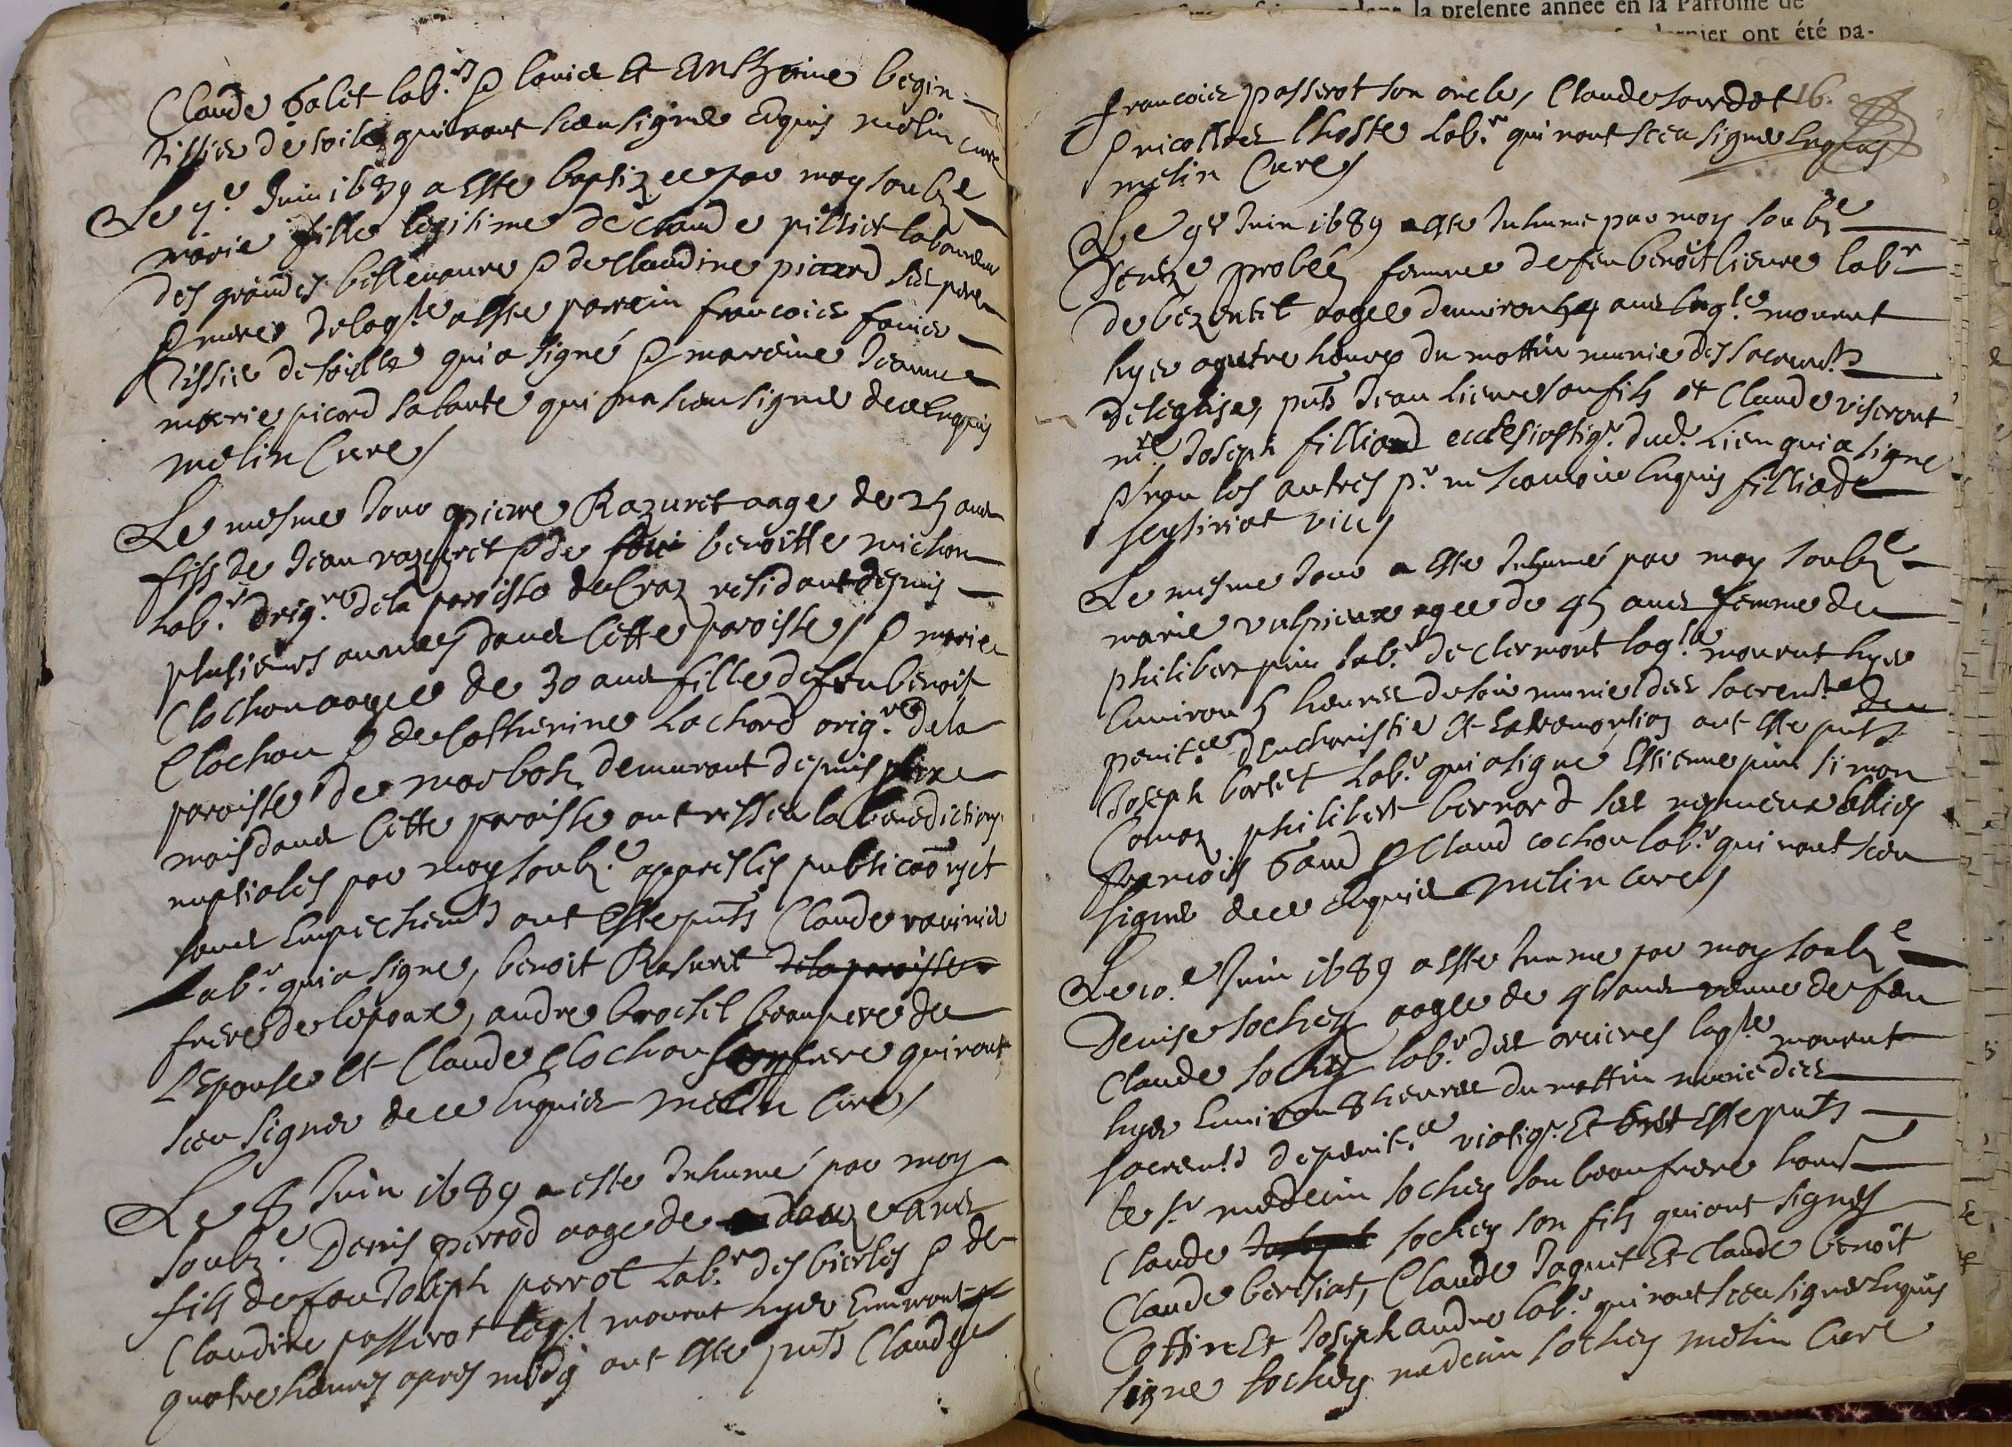 Claude Galet lab.rs & louis et Anthoine begin
tissier de toile qui nont sceu signer Enquis melin cure
Le 7.e Juin 1689 a esté baptizee par moy soubz.e
marie fille legitime de Claude pilliet laboureur
des grandes bellevaure & de Claudine picard ses pere
& mere de laq.lle a este parrein francois
tissier de toille qui a signé & mareine Jeanne
marie picard sa tante qui na sceu signer de ce Enquis
melin Cure
Le mesme Jour pierre Razuret aage de 25 ans
fils de Jean razuret & de feue benoitte michon
lab.r orig.re de la paroisse de Craz residant depuis
plusieurs annees dans Cette paroisse & marie
Clochon aagee de 30 ans fille de feu benoit
Clochon & de Catherine Lachard orig.re de la
paroisse de marboz demeurant depuis
mois dans Cette paroisse ont resseu la benediction
nuptiales par moy soubz.e apres les publicaons et
sans Empechemts ont Esté pnts Claude ravinie
Lab.r qui a signe, benoit Rasuret de la paroisse
frere de lepoux, andre brochet beaupere de
L'Epouse et Claude Clochon son frere qui nont
sceu signer de ce Enquis melin Cure
Le 8 Juin 1689 a este Inhumé par moy
soubz.e Denis perrod aage de douze ans
fils de feu Joseph perrot Lab.r des bierles & de
Claudine passerot leq.l mourut hyer Environ
quatre heures apres midy ont esté pnts Claude
francois passerot son oncle, Claude sourdot 16.
& nicollas lhoste Lab.r qui nont sceu signer Enquis
melin Cure
Le 9e Juin 1689 a esté Inhume par moy soubz.e
Denize probléz femme de feu benoît lieure lab.r
de bezentet aagee denviron 54 ans laq.lle mourut
hyer a quatre heures du mattin munie des sacremts
de leglise, pnts Jean lieure son fils et Claude viseront
m.re Joseph filliard ecclesiastiq. dud. Lieu qui a signe
& non les autres p.r ne scavoir Enquis filliard
vic
Le mesme Jour a esté Inhumé par moy soubz.e
marie vulpieux agee de 45 ans femme de
philibert pin lab.r de clermont laq.lle mourut hyer
Environ 5 heures du soir munie des sacremts de
penit.ce Deucharistie Et Extremontion ont esté pnts
Joseph borset Lab.r qui a signe Estienne pin simon
Comaz philibert bernard ses
francois Gaud & Claud cochon lab.r qui nont sceu
signer de ce Enquis Melin Cure
Le 10.e Juin 1689 a esté Inume par moy soubz.e
Denise sochey aagee de 48 ans veuve de feu
Claude sochey lab.r des orcieres laq.lle mourut
hyer Environ 8 heures du mattin munie des
sacremts de penit.ce viatiq. Et ont Esté pnts
le s.r medecin sochey son beaufrere honet
Claude sochey son fils qui ont signés
Claude bersiat, Claude Jaquet Et Claude benoît
Cottin Et Joseph andre lab.r qui nont sceu signer Enquis
signe sochey medecin sochey melin Cure
la presente année en la Parroisse de
dernier ont été pa-